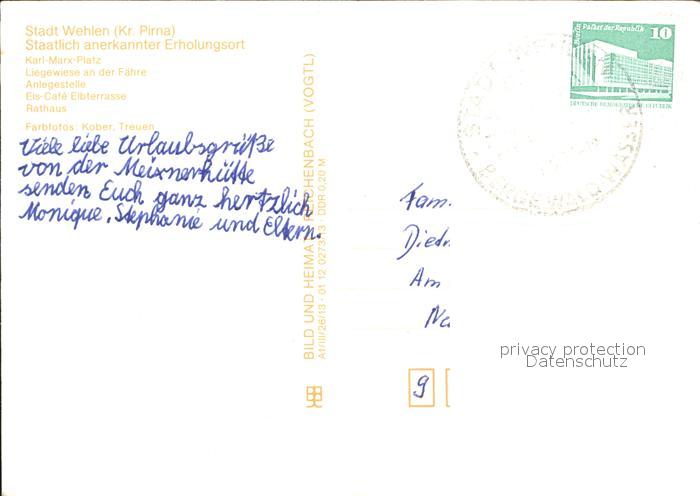 Stadt Wehlen (Kr. Pirna)
Staatlich anerkannter Erholungsort
Karl-Marx-Platz
Liegewiese an der Fähre
Anlegestelle
Eis-Café Elbterrasse
Rathaus
Farbfotos: Kober, Treuen
Viele liebe Urlaubsgrüße
von der Meixnerhütte
senden Euch ganz hertzlich
Monique, Stephanie und Eltern.
BILD UND HEIMAT REICHENBACH (VOGTL)
A1/III/26/13 · 01 12 0273/13 · DDR 0,20 M
Berlin Palast der Republik
10
DEUTSCHE DEMOKRATISCHE REPUBLIK
Fam.
Am
9
privacy protection
Datenschutz